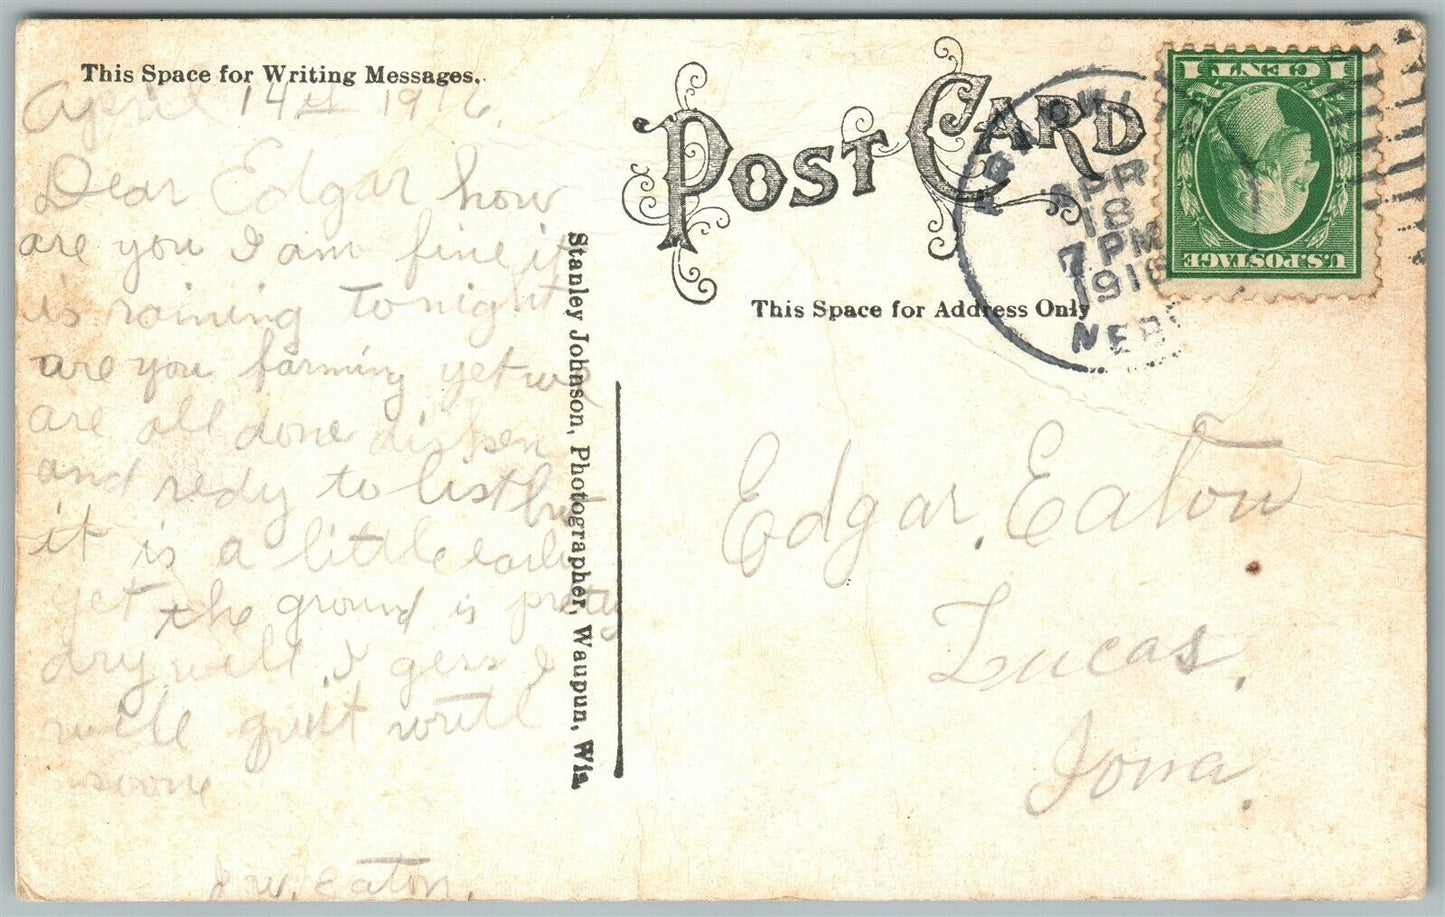 This Space for Writing Messages.
April 14th 1916.
Dear Edgar how
are you I am fine it
is raining tonight
are you farming yet we
are all done disken
and redy to list but
it is a little early
yet the ground is pretty
dry well I gess I
will quit write
soon
J. W. Eaton.
Stanley Johnson, Photographer, Waupun, Wis.
POST CARD
This Space for Address Only
APR
18
7 PM
1916
NEBR
1 CENT 1
U.S. POSTAGE
Edgar. Eaton
Lucas.
Iowa.